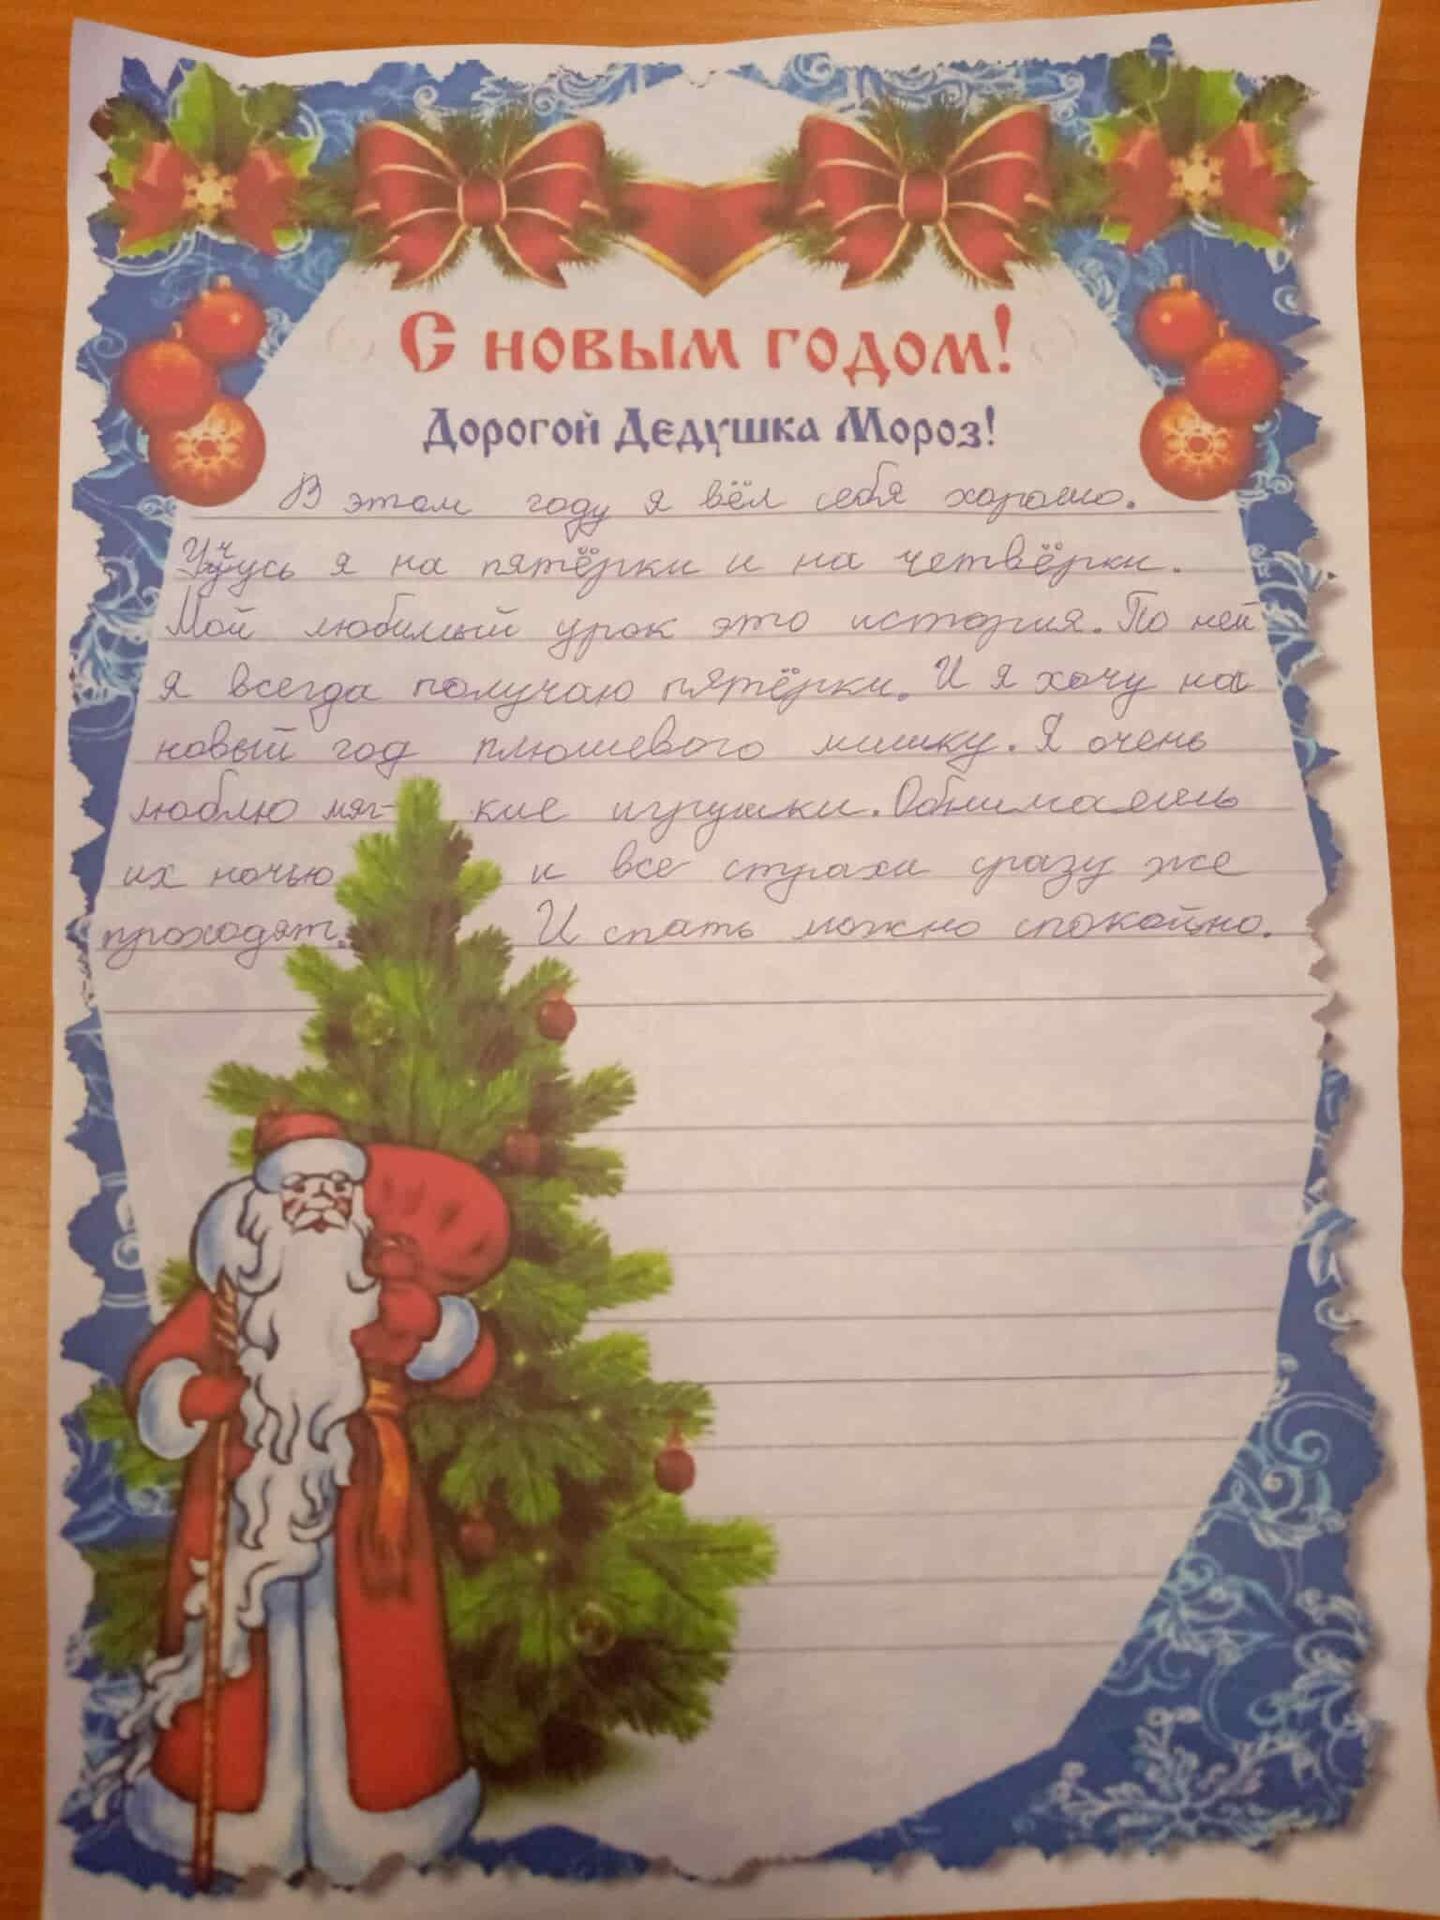 С новым годом!
Дорогой Дедушка Мороз!
В этом году я вёл себя хорошо.
Учусь я на пятёрки и на четвёрки.
Мой любимый урок это история. По ней
я всегда получаю пятёрки. И я хочу на
новый год плюшевого мишку. Я очень
люблю мяг- кие игрушки. Обнимаешь
их ночью и все страхи сразу же
проходят. И спать можно спокойно.